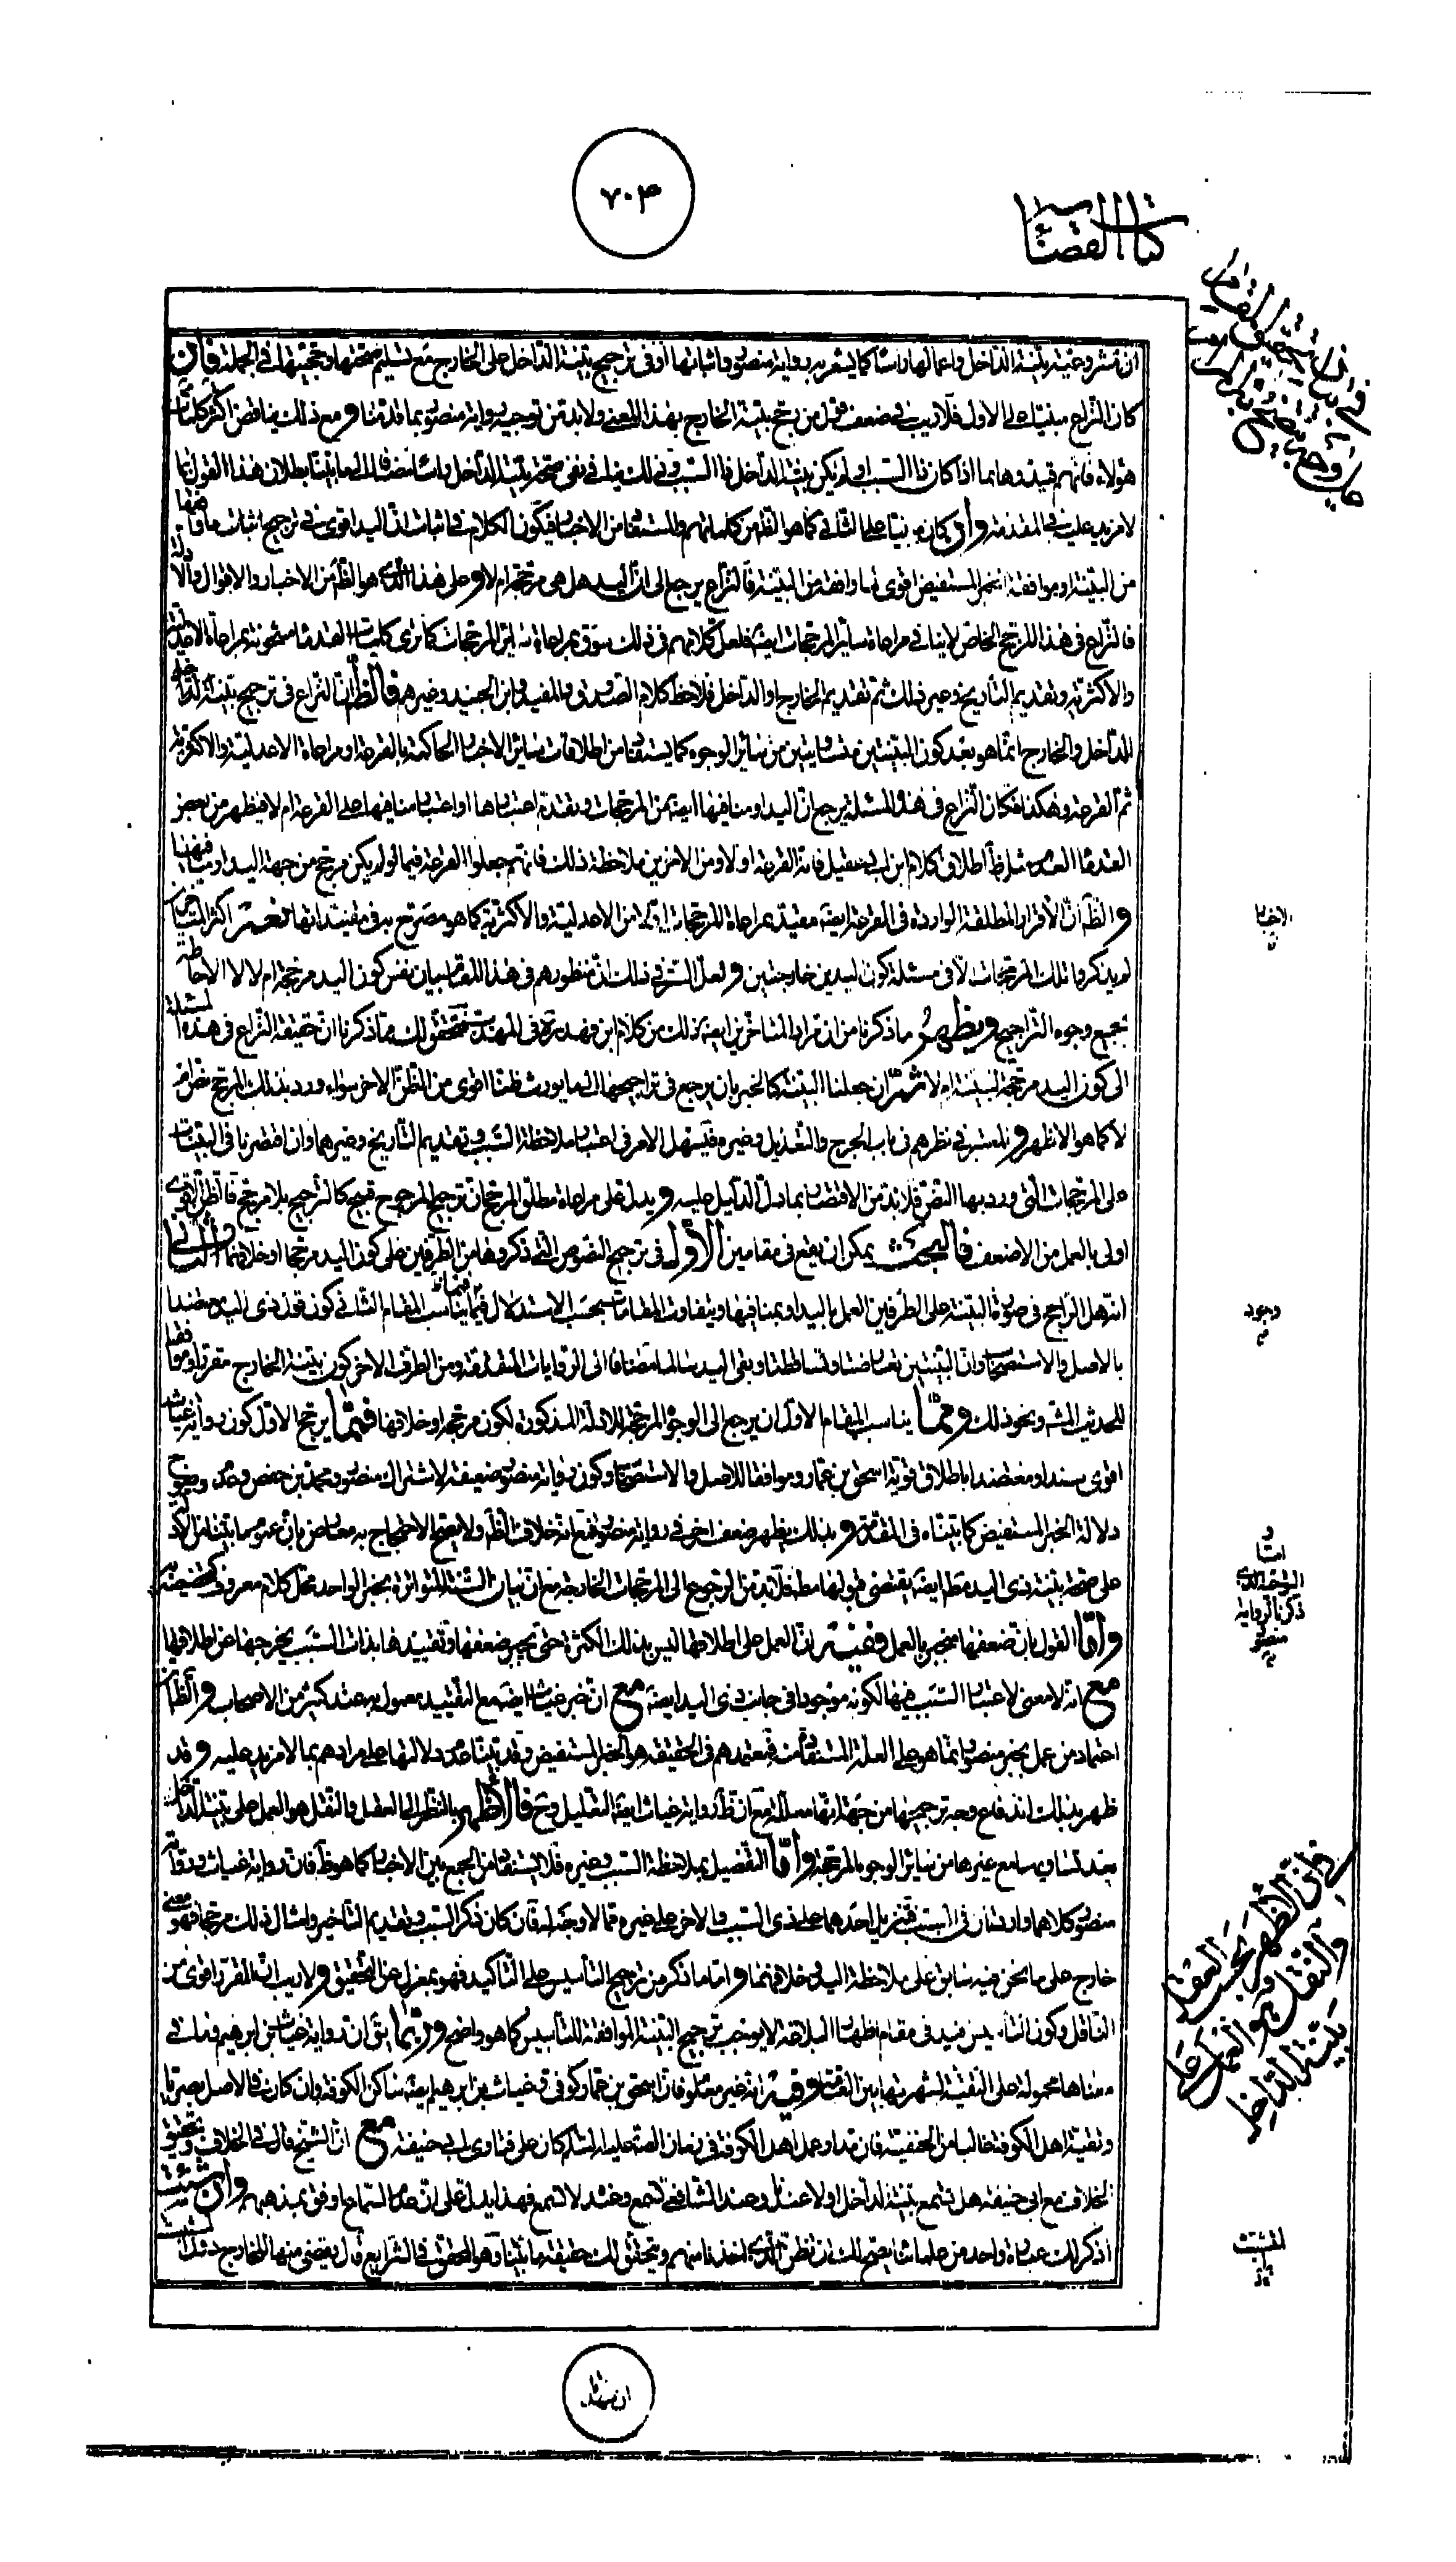 ٧٠٣
كتاب القضاء
ان مشروعية بينة الداخل واعمالها واسا كما يشعر به رواية منصور واثباتها او في ترجيح بينة الداخل على الخارج مع تسليم صحتها وحجيتها في الجملة فان
كان النزاع مبنيا على الاول فلا ريب في ضعف قول من رجح بينة الخارج بهذا المعنى ولا بد من توجيه رواية منصور بما قدمنا ومع ذلك يناقض اكثر كلمات
هؤلاء فانهم قيدوها بما اذا كان ذا السبب او لم يكن بينة الداخل ذا السبب وفي ذلك
لا مزيد عليه في المقدمة وان كان مبنيا على الثاني كما هو الظاهر من كلماتهم والمستفاد من الاخبار فيكون الكلام في اثبات ان اليد اقوى في ترجيح اثبات ما وافقها
من البينة او موافقة الخبر المستفيض اقوى لما وافقه من البينة فالنزاع يرجع الى ان اليد هل هي مرجحة ام لا وعلى هذا الذي هو الظاهر من الاخبار والاقوال والادلة
فالنزاع في هذا المرجح الخاص لا ينافي مراعاة سائر المرجحات ايضا فلعل كلامهم في ذلك مسوق بمراعاة سائر المرجحات كما ترى كلمات القدماء مشحونة بمراعاة الاعدلية
والاكثرية وتقديم التاريخ وغير ذلك ثم تقديم الخارج او الداخل فلاحظ كلام الصدوق والمفيد وابن الجنيد وغيرهم فالظاهر ان النزاع في ترجيح بينة
الداخل والخارج انما هو بعد كون البينتين متساويتين من سائر الوجوه كما يستفاد من اطلاقات سائر الاخبار الحاكمة بالقرعة او مراعاة الاعدلية والاكثرية
ثم القرعة وهكذا فكان النزاع في هذه المسئلة يرجع ان اليد او منافيها ايضا من المرجحات ويقدم اعتبارها او اعتبار منافيها على القرعة ام لا فيظهر من بعض
القدماء العدم مثل ظاهر اطلاق كلام ابن ابي عقيل فانه القرعة اولا ومن الاخرين ملاحظة ذلك فانهم جعلوا القرعة فيما لو لم يكن مرجح من جهة اليد او منافيها
والظاهر ان الافراد المطلقة الواردة في القرعة ايضا مقيدة بمراعاة المرجحات من الاعدلية والاكثرية كما هو مصرح به في مقيداتها نعم اكثر المتأخرين
لم يذكروا تلك المرجحات الا في مسئلة كون اليدين خارجتين ولعل السر في ذلك ان منظورهم في هذا المقام بيان نفس كون اليد مرجحة ام لا لا الاحاطة
بجميع وجوه التراجيح ويظهر ما ذكرنا من ان مراد المتأخرين ايضا ذلك من كلام ابن فهد ره في المهذب فتحقق لك مما ذكرنا ان حقيقة النزاع في هذه المسئلة
الى كون اليد مرجحة للبينة ام لا ثم ان جعلنا البينة كالخبر بان يرجع في تراجيحها الى ما يورث ظنا اقوى من الظن الاخر سواء ورد بذلك المرجح نص ام
لا كما هو الاظهر والمعتبر في نظرهم في باب الجرح والتعديل وغيره فيسهل الامر في اعتبار ملاحظة السبب وتقديم التاريخ وغيرهما وان اقتصرنا في البينات
على المرجحات التي ورد بها النص فلا بد من الاقتصار بما دل الدليل عليه ويدل على مراعاة مطلق المرجح ان ترجيح المرجوح قبيح كالترجيح بلا مرجح فالظن القوي
اولى بالعمل من الاضعف فالبحث يمكن ان يقع في مقامين الاول في ترجيح النصوص التي ذكروها من الطرفين على كون اليد مرجحا او خلافها والثاني
انه هل الراجح في صورة البينة على الطرفين العمل باليد او بمنافيها ويتفاوت المقامات بحسب الاستدلال فمما يناسب المقام الثاني كون قول ذي اليد معتضدا
بالاصل والاستصحاب وان البينتين تعارضتا وتساقطتا وبقى اليد سالما مضافا الى الروايات المتقدمة ومن الطرف الاخر كون بينة الخارج مقررا وموافقا
للحديث المشهور ونحو ذلك ومما يناسب المقام الاول ان يرجع الى الوجوه المرجحة للادلة المذكورة لكون مرجحة او خلافها فمما يرجح الاول كون رواية غياث
اقوى سندا ومعتضدا باطلاق قوية اسحق بن عمار وموافقا للاصل والاستصحاب وكون رواية منصور ضعيفة لاشتراك منصور ومحمد بن حفص وعدم وضوح
دلالة الخبر المستفيض كما بيناه في المقدمة وبذلك يظهر ضعف اخر في رواية منصور
على صحة بينة ذي اليد مطلقا ايضا يقتضي قبولها مطلقا فلا بد من الرجوع الى المرجحات الخارجة مع ان بيان السنة المتواترة بخبر الواحد محل كلام معروف كتخصيصه به
واما القول بان ضعفها منجبر بالعمل ففيه ان العمل على اطلاقها ليس بذلك الكثرة حتى يجبر ضعفها وتقييدها بذات السبب يخرجها عن اطلاقها
مع انه لا معنى لاعتبار السبب فيها لكونه موجودا في جانب ذي اليد ايضا مع ان خبر غياث ايضا مع التقييد معمول به عند كثير من الاصحاب والظاهر ان
اعتماد من عمل بخبر منصور انما هو على العلة المستفادة منه فمعتمدهم في الحقيقة هو الخبر المستفيض وقد بينا عدم دلالتها على مرادهم بما لا مزيد عليه وقد
ظهر بذلك اندفاع وجه ترجيحها من جهة انها معللة مع ان ظاهر رواية غياث ايضا التعليل وح فالاظهر بالنظر الى العقل والنقل هو العمل على بينة الداخل
بعد تساويها مع غيرها من سائر الوجوه المرجحة واما التفصيل بملاحظة السبب وغيره فلا يستفاد من الجمع بين الاخبار كما هو ظاهر فان رواية غياث ورواية
منصور كلاهما واردتان في السبب فتنزيل احدهما على ذي السبب والاخر على غيره مما لا وجه له فان كان ذكر السبب وتقديم التاخير وامثال ذلك مرجحا فهو معنى
خارج على ما نحن فيه سابق على ملاحظة اليد وخلافهما واما ما ذكر من ترجيح التأسيس على التأكيد فهو بمعزل عن التحقيق ولا ريب ان المقرر اقوى من
الناقل وكون التأسيس مفيد في مقام اظهار البلاغة لا يوجب ترجيح البينة الموافقة للتأسيس كما هو واضح وربما يق ان رواية غياث بن ابرهيم وما في
معناها محمولة على التقية لشهرتها بين العامة وفيه انه غير معلوم فان اسحق بن عمار كوفي وغياث بن ابرهيم ايضا ساكن الكوفة وان كان في الاصل بصريا
وتقية اهل الكوفة غالبا من الحنفية فان تداول عمل اهل الكوفة في زمان الصادق عليه السلام كان على فتاوى ابي حنيفة مع ان الشيخ قال في الخلاف وتحقيق
الخلاف مع ابي حنيفة هل تسمع بينة الداخل اولا وعند الشافعي تسمع وعنده لا تسمع فهذا يدل على ان عدم السماع اوفق بمذهبهم وان شئت
اذكر لك عبارة واحد من علمائنا يصحح لك ان تظن الذي اخذنا منهم ويتحقق لك حقيقة ما بينا وهو المحقق في الشرايع قال يقضي منها للخارج دون
الاخبار
وجود
الرواية
منصور
وان الاظهر بحسب العقل
والنقل هو العمل على
بينة الداخل